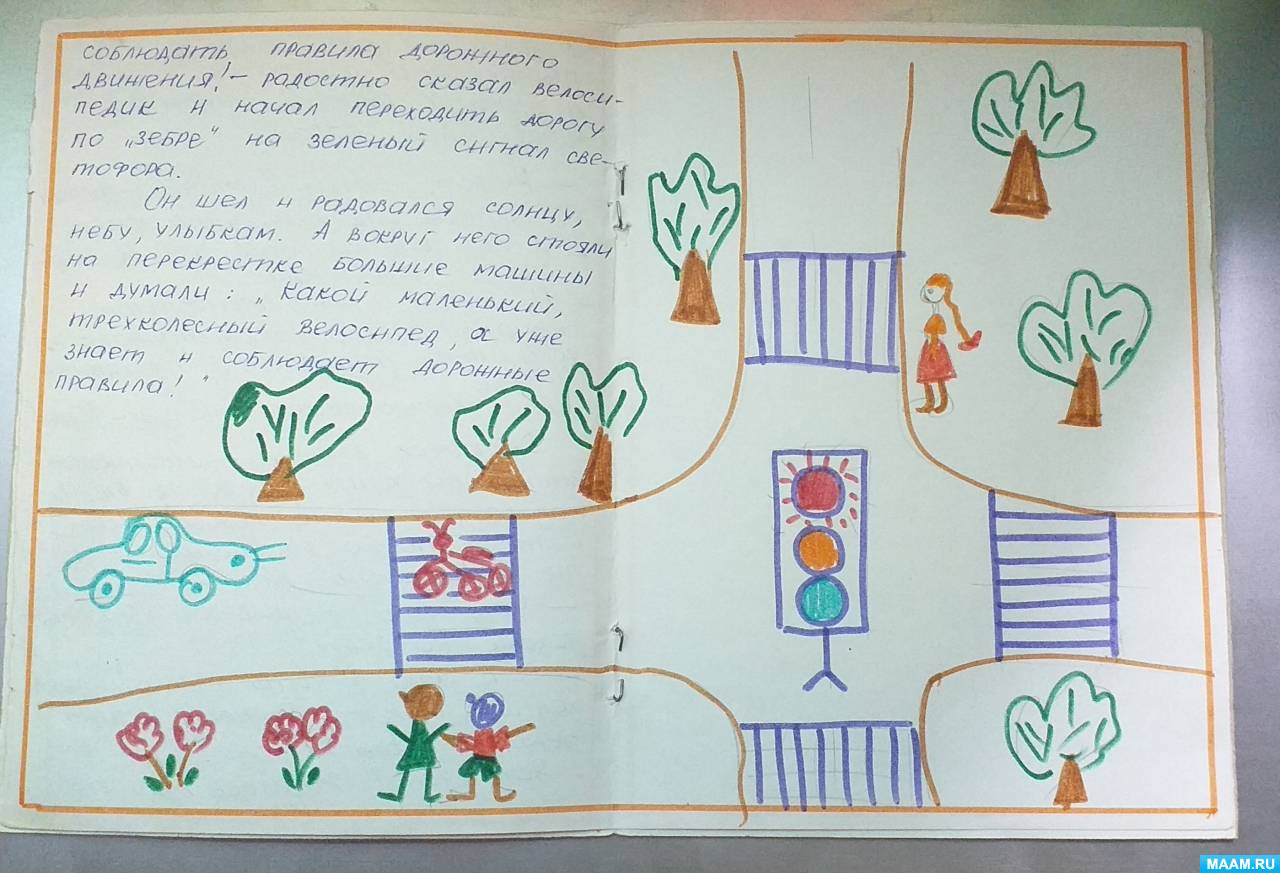 соблюдать правила дорожного
движения! – радостно сказал велоси-
педик и начал переходить дорогу
по „зебре“ на зеленый сигнал све-
тофора.
Он шел и радовался солнцу,
небу, улыбкам. А вокруг него стояли
на перекрестке большие машины
и думали: „Какой маленький,
трехколесный велосипед, а уже
знает и соблюдает дорожные
правила!“
MAAM.RU